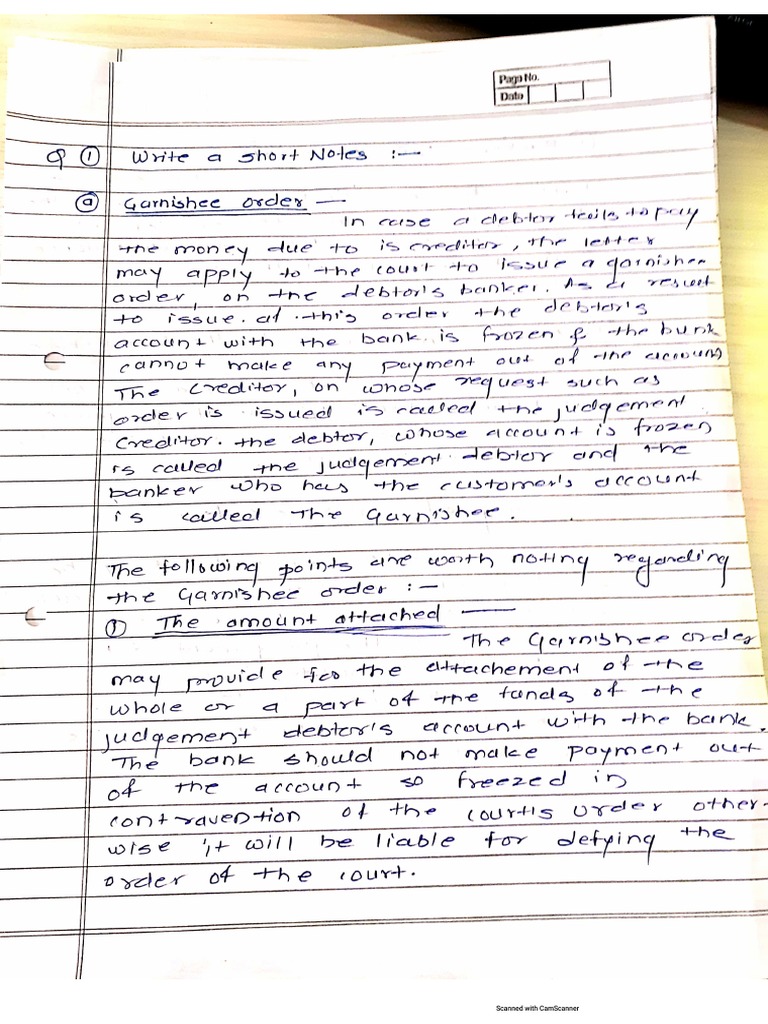 Page No.
Date
Q ① Write a short Notes :—
ⓐ Garnishee order —
In case a debtor fails to pay
the money due to is creditor, the letter
may apply to the court to issue a garnishee
order, on the debtor's banker. As a result
to issue. of this order the debtor's
account with the bank is frozen & the bank
cannot make any payment out of the account
The creditor, on whose request such as
order is issued is called the judgement
creditor. the debtor, whose account is frozen
is called the judgement debtor and the
banker who has the customer's account
is called The Garnishee.
The following points are worth noting regarding
the Garnishee order :—
① The amount attached —
The Garnishee order
may provide for the attachement of the
whole or a part of the funds of the
judgement debtor's account with the bank.
The bank should not make payment out
of the account so freezed in
contravention of the court's order other-
wise it will be liable for defying the
order of the court.
Scanned with CamScanner